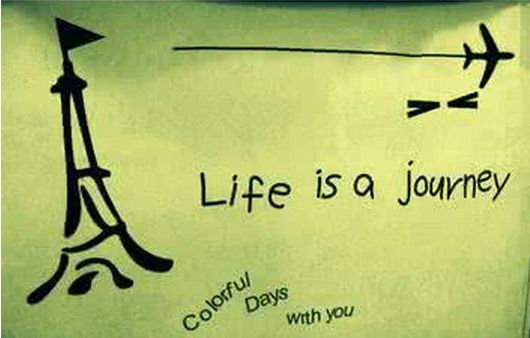 Life is a journey
Colorful Days with you